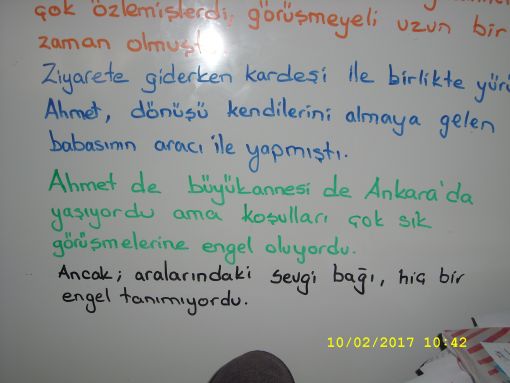 çok özlemişlerdi, görüşmeyeli uzun bir
zaman olmuştu.
Ziyarete giderken kardeşi ile birlikte
Ahmet, dönüşü kendilerini almaya gelen
babasının aracı ile yapmıştı.
Ahmet de büyükannesi de Ankara'da
yaşıyordu ama koşulları çok sık
görüşmelerine engel oluyordu.
Ancak; aralarındaki sevgi bağı, hiç bir
engel tanımıyordu.
10/02/2017 10:42